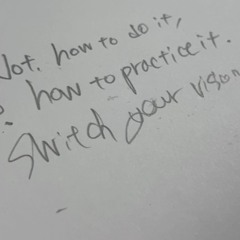 Not. how to do it,
how to practice it.
Switch your vision